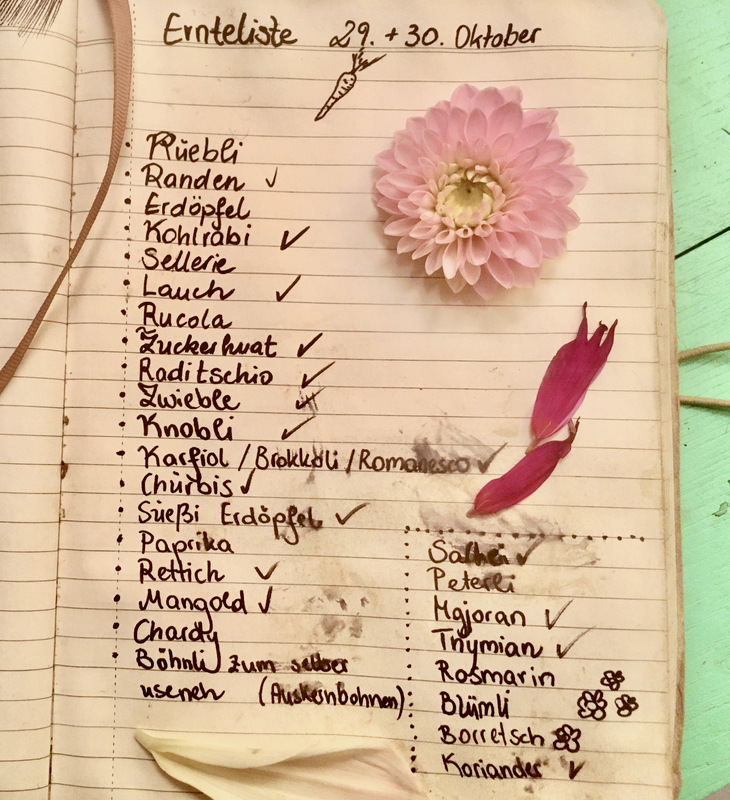 Ernteliste 29. + 30. Oktober
Rüebli
Randen ✓
Erdöpfel
Kohlrabi ✓
Sellerie
Lauch ✓
Rucola
Zuckerhuat ✓
Raditschio ✓
Zwieble ✓
Knobli ✓
Karfiol / Brokkoli / Romanesco ✓
Chürbis ✓
Süeßi Erdöpfel ✓
Paprika
Rettich ✓
Mangold ✓
Chardy
Böhnli zum selber
useneh (Auskernbohnen)
Salbei ✓
Peterli
Majoran ✓
Thymian ✓
Rosmarin
Blümli
Borretsch
Koriander ✓